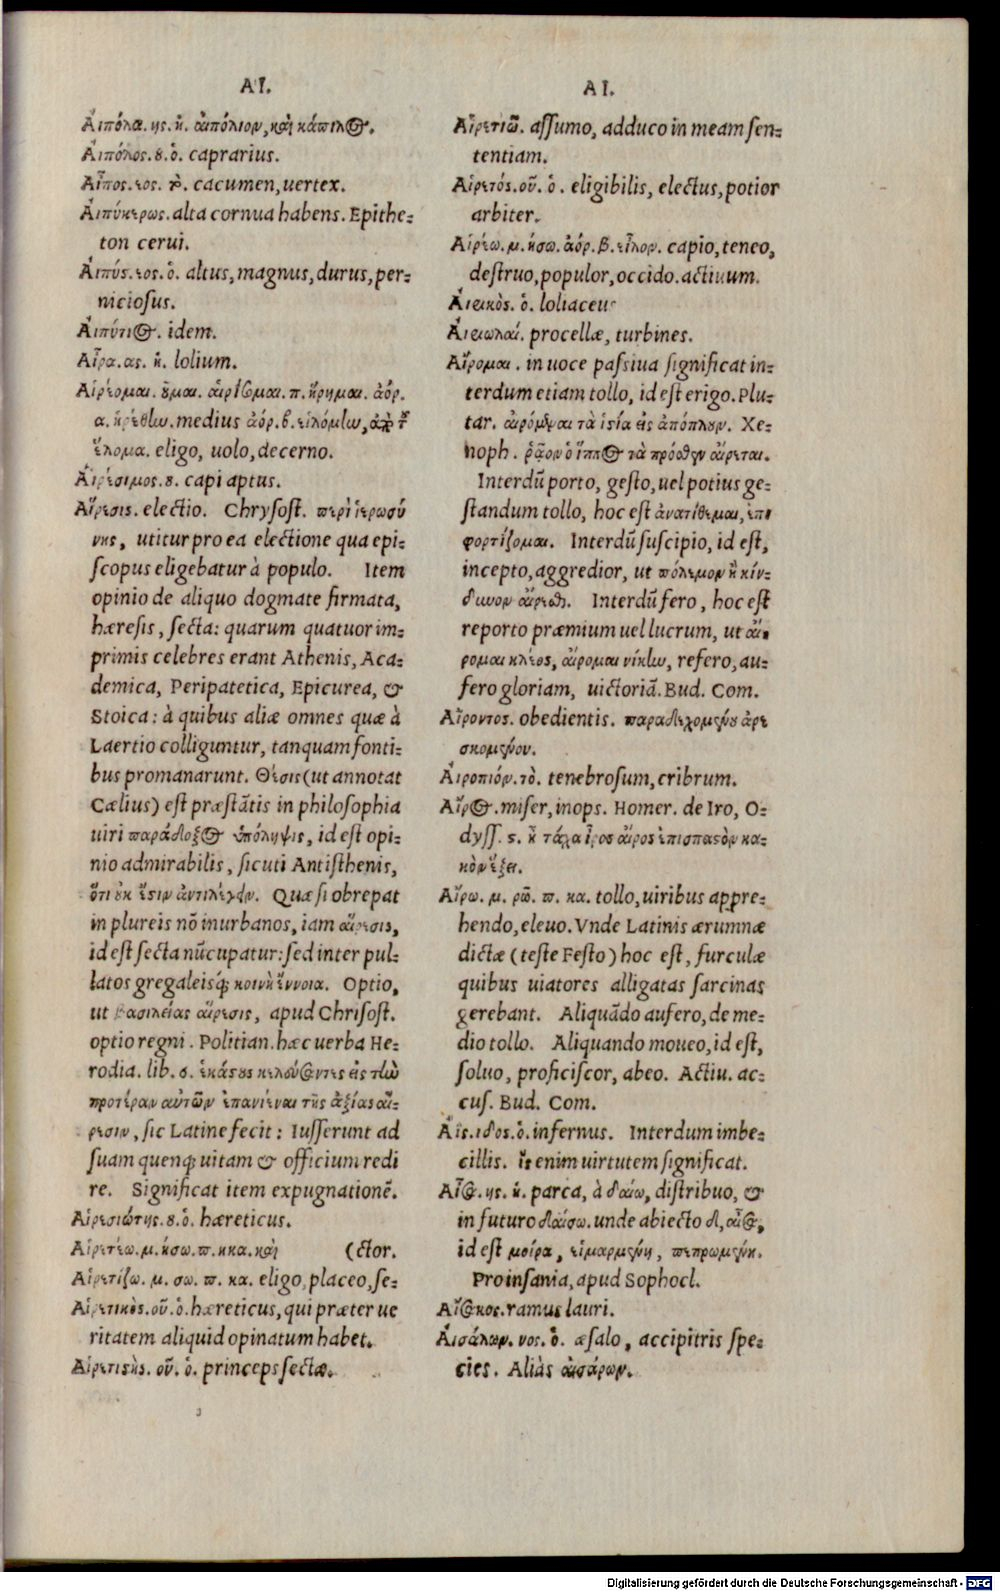 ΑΙ.
Αἰπόλα. ης. ἡ. αἰπόλιον, καὶ κάπηλος.
Αἰπόλος. ου. ὁ. caprarius.
Αἶπος. εος. τὸ. cacumen, uertex.
Αἰπύκερως. alta cornua habens. Epithe-
ton cerui.
Αἰπύς. εος. ὁ. altus, magnus, durus, per-
niciosus.
Αἰπύτιος. idem.
Αἶρα. ας. ἡ. lolium.
Αἱρέομαι. οῦμαι. αἱρήσομαι. π. ᾕρημαι. ἀόρ.
α. ᾑρέθην. medius ἀόρ. β. εἱλόμην, ἀπὸ τοῦ
ἕλομαι. eligo, uolo, decerno.
Αἱρέσιμος. ου. capi aptus.
Αἵρεσις. electio. Chrysost. περὶ ἱερωσύ
νης, utitur pro ea electione qua epi-
scopus eligebatur à populo. Item
opinio de aliquo dogmate firmata,
hæresis, secta: quarum quatuor im-
primis celebres erant Athenis, Aca-
demica, Peripatetica, Epicurea, &
Stoica: à quibus aliæ omnes quæ à
Laertio colliguntur, tanquam fonti-
bus promanarunt. Θέσις (ut annotat
Cælius) est præstãtis in philosophia
uiri παράδοξος ὑπόληψις, id est opi-
nio admirabilis, sicuti Antisthenis,
ὅτι οὐκ ἔστιν ἀντιλέγειν. Quæ si obrepat
in plureis nõ inurbanos, iam αἵρεσις,
id est secta nũcupatur: sed inter pul-
latos gregaleisq; κοινὴ ἔννοια. Optio,
ut βασιλείας αἵρεσις, apud Chrisost.
optio regni. Politian. hæc uerba He-
rodia. lib. ς. ἑκάστους κελεύσαντες εἰς τὴν
προτέραν αὐτῶν ἐπανιέναι τῆς ἀξίας αἵ-
ρεσιν, sic Latine fecit: Iusserunt ad
suam quenq; uitam & officium redi
re. Significat item expugnationẽ.
Αἱρεσιώτης. ου. ὁ. hæreticus.
Αἱρετέω. μ. ήσω. π. ηκα. καὶ (ctor.
Αἱρετίζω. μ. σω. π. κα. eligo, placeo, se-
Αἱρετικὸς. οῦ. ὁ. hæreticus, qui præter ue
ritatem aliquid opinatum habet.
Αἱρετιστὴς. οῦ. ὁ. princeps sectæ.
ΑΙ.
Αἱρετιῶ. assumo, adduco in meam sen-
tentiam.
Αἱρετός. οῦ. ὁ. eligibilis, electus, potior
arbiter.
Αἱρέω. μ. ήσω. ἀόρ. β. εἷλον. capio, teneo,
destruo, populor, occido. actiuum.
Αἰρικὸς. ὁ. loliaceus
Αἰρωλαί. procellæ, turbines.
Αἴρομαι. in uoce passiua significat in-
terdum etiam tollo, id est erigo. Plu-
tar. αἰρόμεναι τὰ ἱστία εἰς ἀπόπλουν. Xe-
noph. ῥᾷον ὁ ἵππος τὰ πρόσθεν αἴρεται.
Interdũ porto, gesto, uel potius ge-
standum tollo, hoc est ἀνατίθεμαι, ἐπι
φορτίζομαι. Interdũ suscipio, id est,
incepto, aggredior, ut πόλεμον ἢ κίν-
δυνον αἴρεσθαι. Interdũ fero, hoc est
reporto præmium uel lucrum, ut αἴ-
ρομαι κλέος, αἴρομαι νίκην, refero, au-
fero gloriam, uictoriã. Bud. Com.
Αἴροντος. obedientis. παραδεχομένου ἀρε
σκομένου.
Αἰροπιόν. τὸ. tenebrosum, cribrum.
Αἶρος. miser, inops. Homer. de Iro, O-
dyss. ς. ἦ τάχα ἶρος ἄϊρος ἐπίσπαστον κα-
κὸν ἕξει.
Αἴρω. μ. ρῶ. π. κα. tollo, uiribus appre-
hendo, eleuo. Vnde Latinis ærumnæ
dictæ (teste Festo) hoc est, furculæ
quibus uiatores alligatas sarcinas
gerebant. Aliquãdo aufero, de me-
dio tollo. Aliquando moueo, id est,
soluo, proficiscor, abeo. Actiu. ac-
cus. Bud. Com.
Ἄϊς. ιδος. ὁ. infernus. Interdum imbe-
cillis. ἲς enim uirtutem significat.
Αἶσα. ης. ἡ. parca, à δαίω, distribuo, &
in futuro δαίσω. unde abiecto δ, αἶσα,
id est μοίρα, εἱμαρμένη, πεπρωμένη.
Pro insania, apud Sophocl.
Αἴσακος. ramus lauri.
Αἰσάλων. νος. ὁ. æsalo, accipitris spe-
cies. Aliàs αἰσάρων.
Digitalisierung gefördert durch die Deutsche Forschungsgemeinschaft - DFG